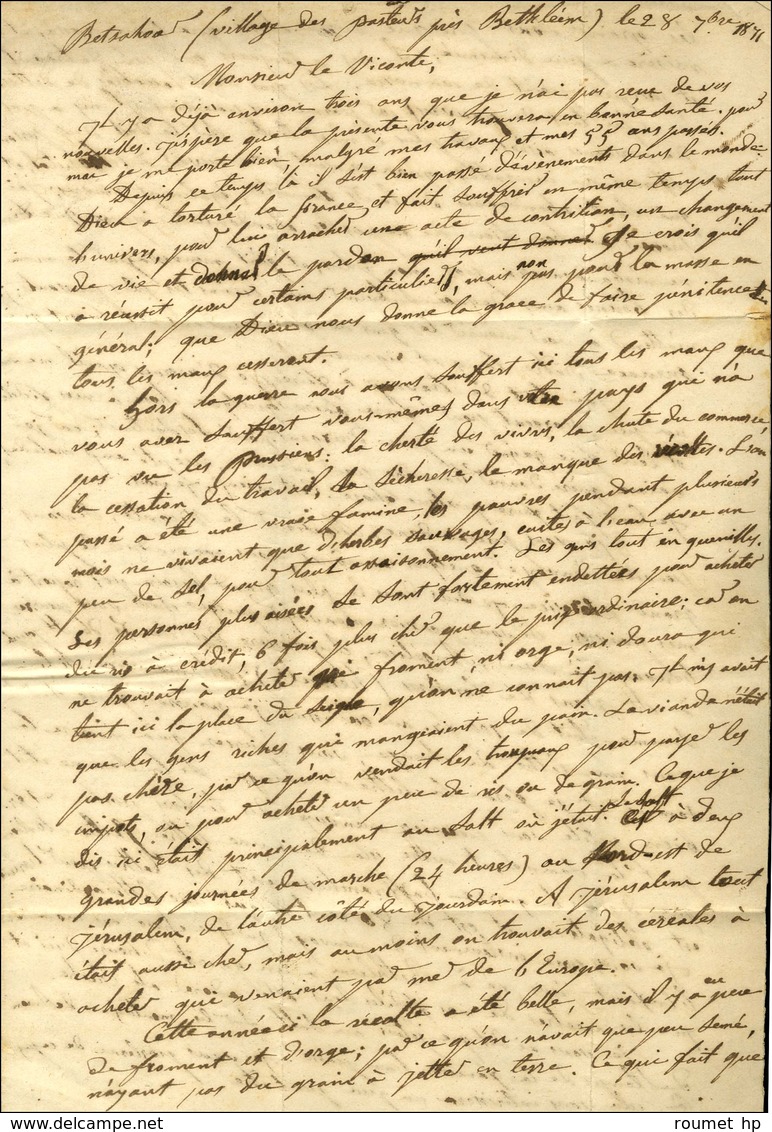 Betsahour (village des Pasteurs près Bethléem) le 28 7bre 1871
Monsieur le Viconte,
Il y a déjà environ trois ans que je n'ai pas reçu de vos
nouvelles. J'éspère que la présente vous trouvera en bonne santé. pour
moi je me porte bien, malgré mes travaux et mes 55 ans passés.
Depuis ce temps là il s'est bien passé d'évènements dans le monde
Dieu a torturé la france et fait souffrir en même temps tout
l'univers, pour lui arracher une acte de contrition, un changement
de vie et donner le pardon qu'il veut donner. Je crois qu'il
a réussit pour certains particuliers, mais non pas pour la masse en
général; que Dieu nous donne la grace de faire pénitence et
tous les maux cesseront.
Hors la guerre nous avons souffert ici tous les maux que
vous avez souffert vous-mêmes dans votre pays qui n'a
pas vu les Prussiens: la cherté des vivres, la chute du commerce,
la cessation du travail, la sècheresse, le manque des récoltes. L'an
passé a été une vraie famine, les pauvres pendant plusieurs
mois ne vivaient que d'herbes sauvages, cuites à l'eau avec un
peu de sel, pour tout assaisonnement. Les gens tout en guenilles.
Les personnes plus aisées se sont fortement endettées pour acheter
du ris à crédit, 6 fois plus cher que le prix ordinaire; car on
ne trouvait à acheter ni froment, ni orge, ni doura qui
tient ici la place du seigle, qu'on ne connait pas. Il n'y avait
que les gens riches qui mangeaient du pain. La viande n'était
pas chère, par ce qu'on vendait les troupeaux pour payer les
impots, ou pour acheter un peu de ris ou de grain. Ce que je
dis ici était principalement au Salt où j'étais. Le Salt est à deux
grandes journées de marche (24 heures) au Nord-est de
Jérusalem, de l'autre côté du Jourdain. A Jérusalem tout
était aussi cher, mais au moins on trouvait des céréales à
acheter qui venaient par mer de l'Europe.
Cette année ci la récolte a été belle, mais il y a eu peu
de froment et d'orge; par ce qu'on n'avait que peu semé,
n'ayant pas du grain à jetter en terre. Ce qui fait que
roumet hp